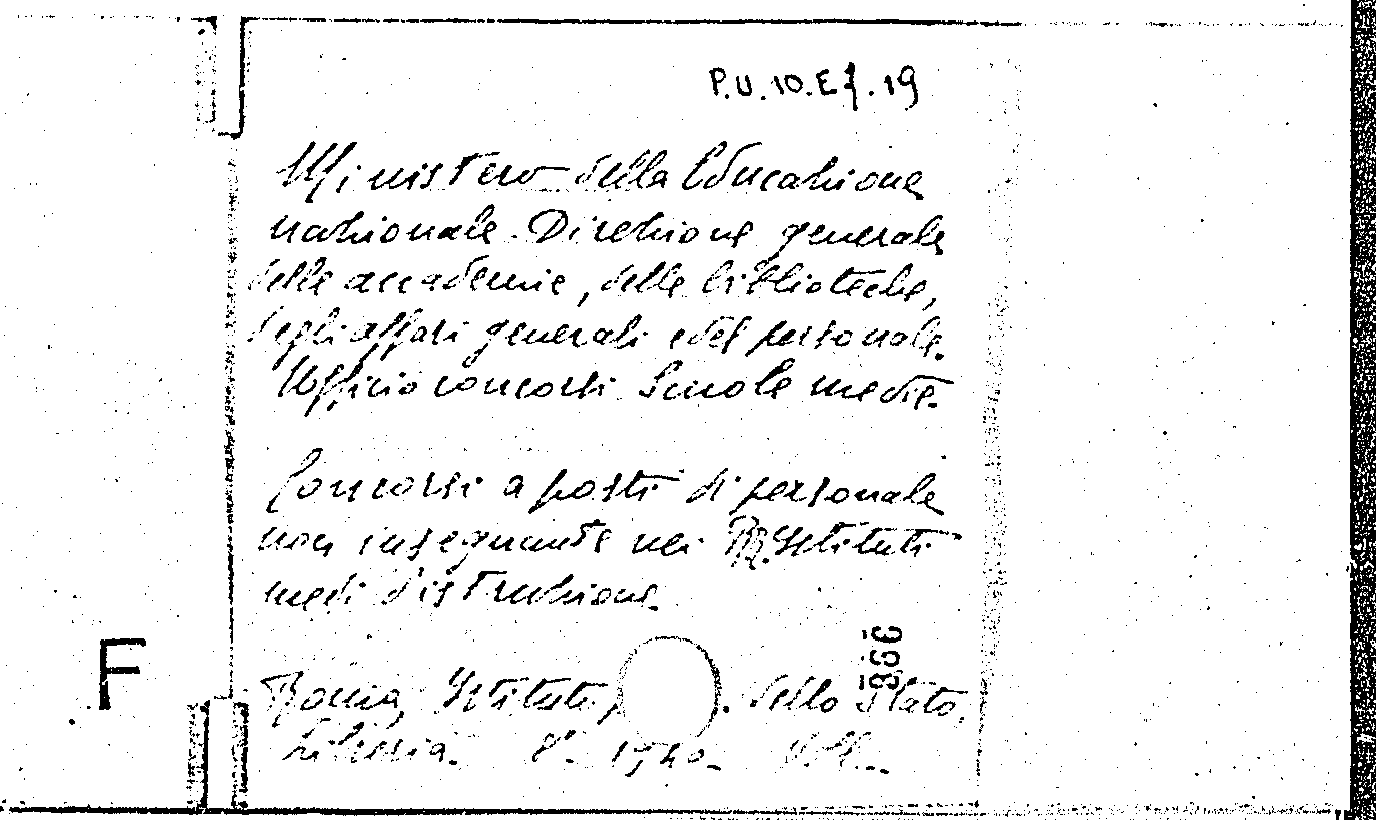 P.U.10.E7.19
Ministero della Educazione
nazionale. Direzione generale
delle accademie, delle biblioteche,
degli affari generali e del personale.
Ufficio concorsi Scuole medie.
Concorsi a posti di personale
non insegnante nei RR. Istituti
medi d'istruzione.
Roma, Istituto, . dello Stato,
Libreria. 8º. 1940.
366
F